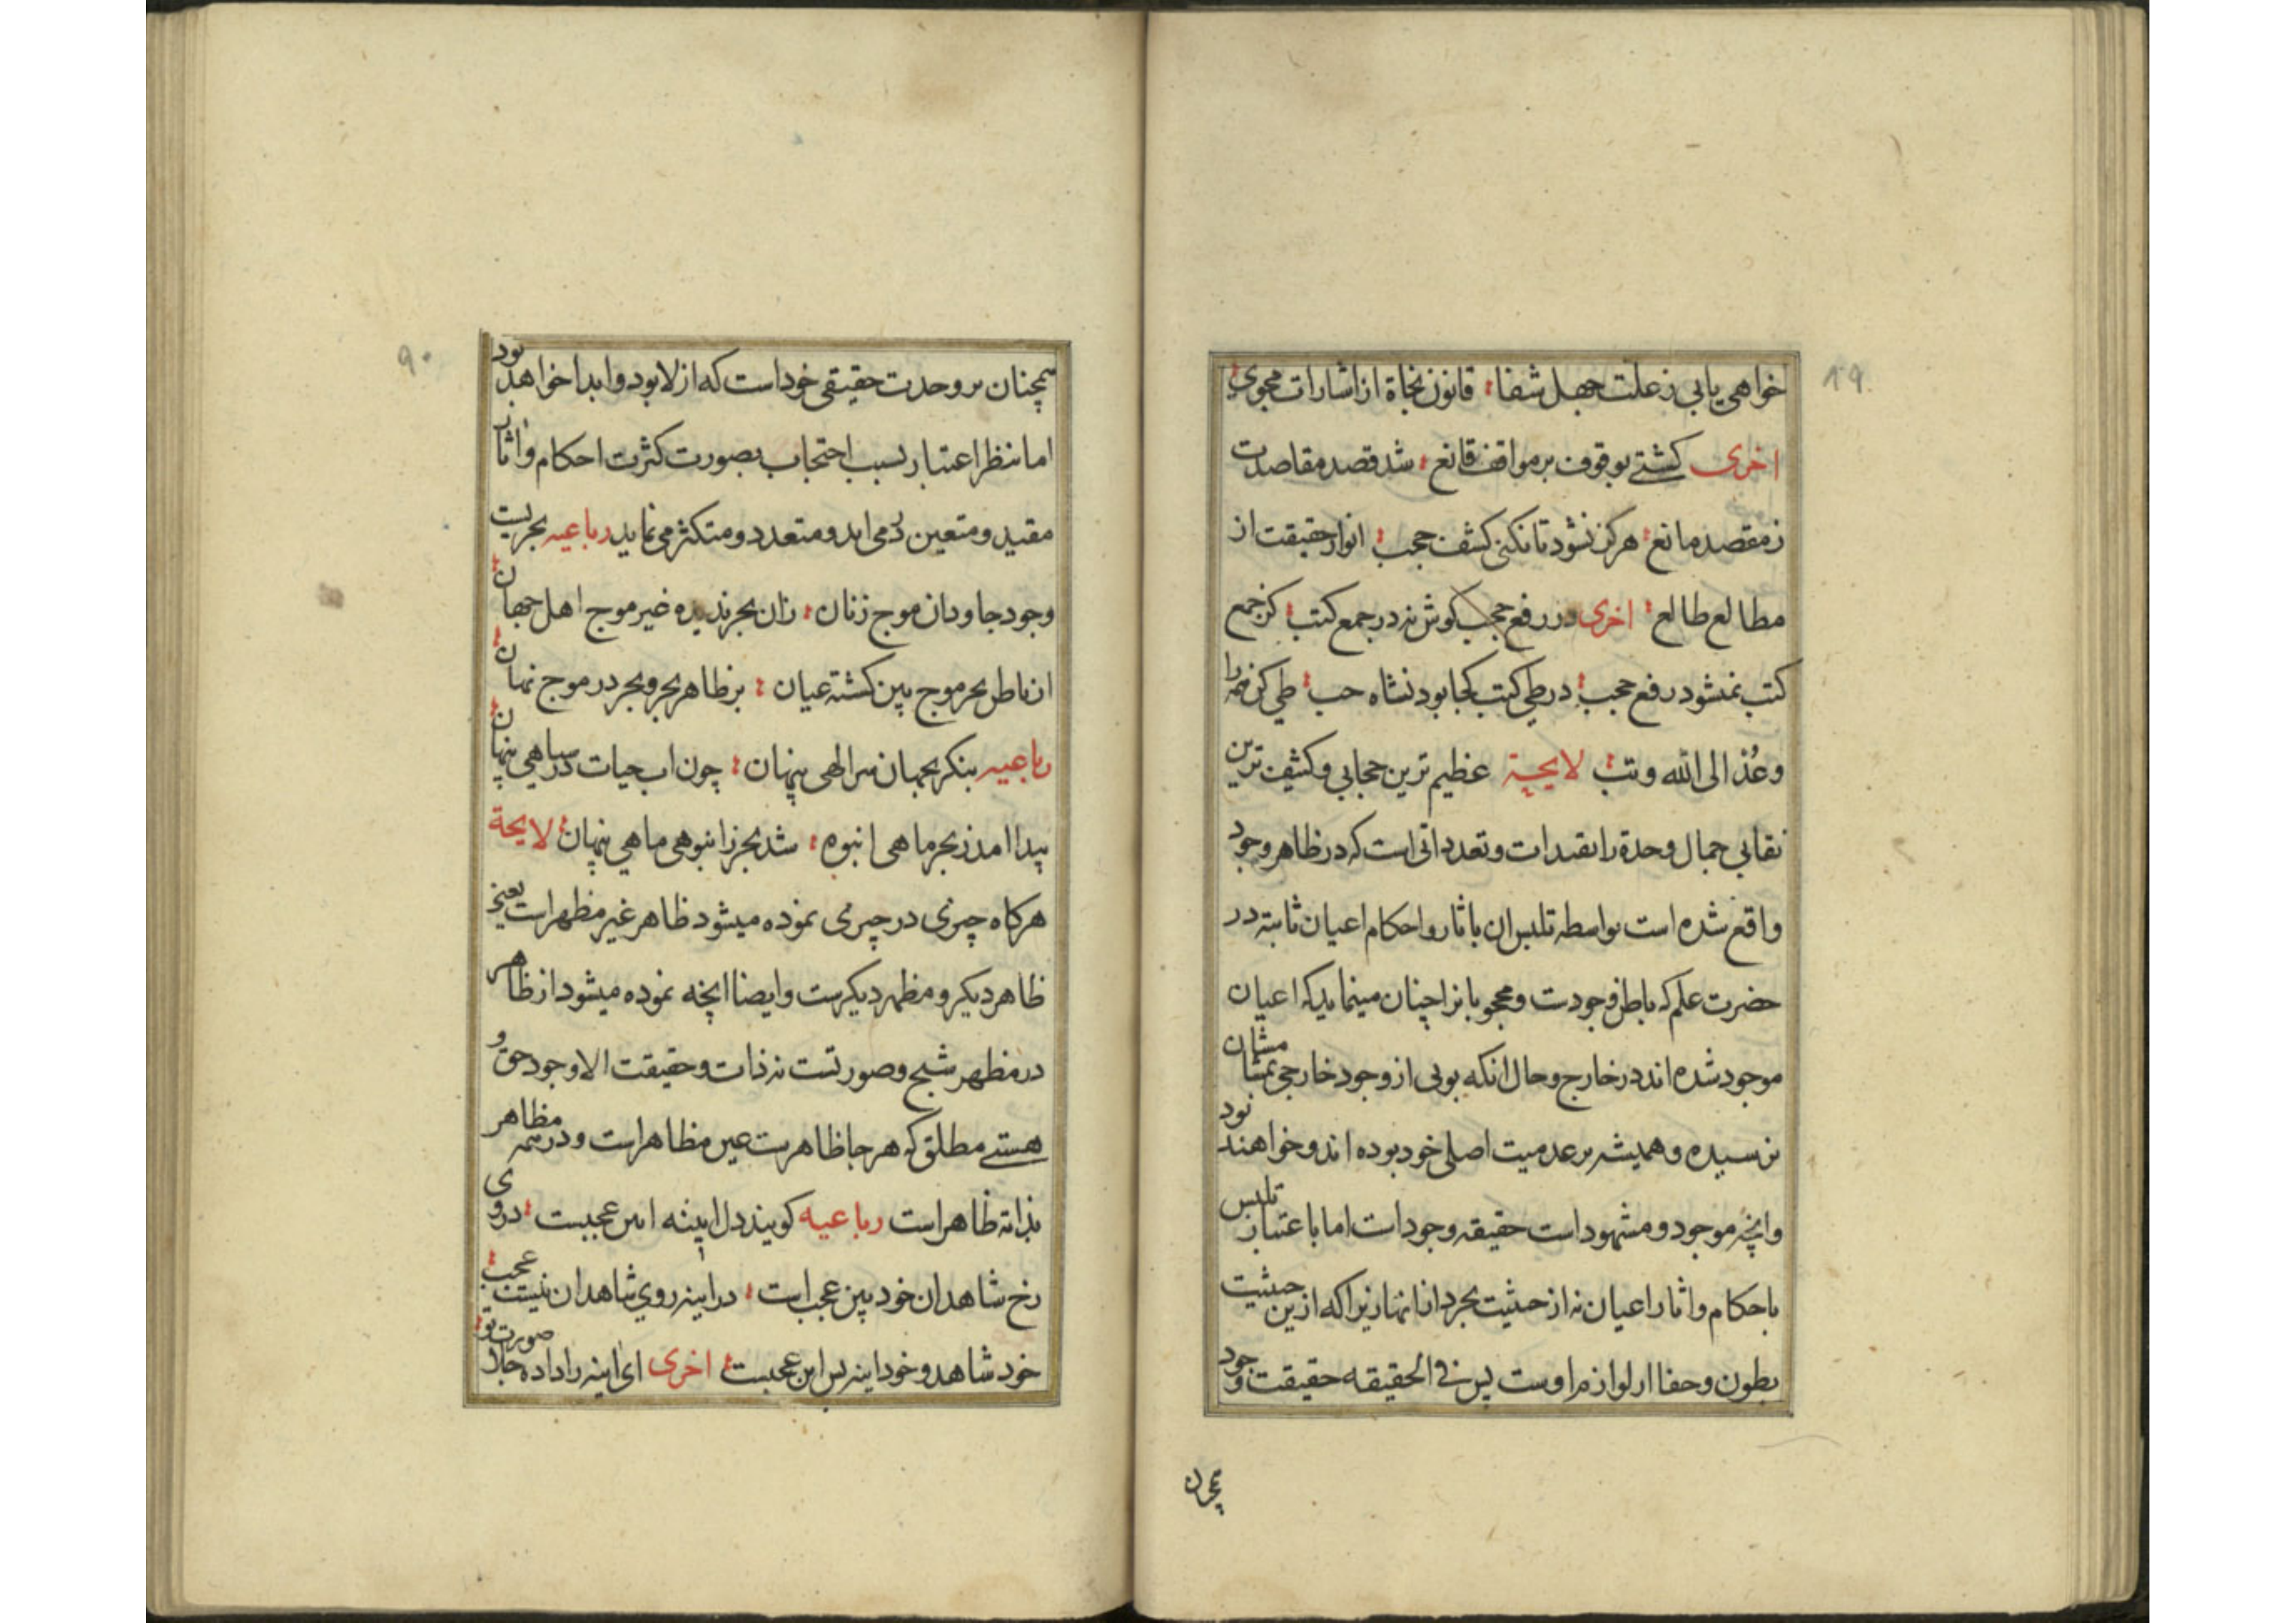 خواهی یابی ز علت جهل شفا ؛ قانون نجاة از اشارات مجوی ؛
اخری کشتی بوقوف بر مواقف قانع ؛ شد قصد مقاصدت
ز مقصد مانع ؛ هرکز نشود تا نکنی کشف حجب ؛ انوار حقیقت از
مطالع طالع ؛ اخری در رفع حجب کوش نه در جمع کتب ؛ کز جمع
کتب نمیشود رفع حجب ؛ در طی کتب کجا بود نشاه حب ؛ طی کن همه را
وعُد الی الله وتب ؛ لایحة عظیم ترین حجابی وکثیف ترین
نقابی جمال وحدة را تقیدات وتعدداتی است که در ظاهر وجود
واقع شده است بواسطه تلبس ان باثار واحکام اعیان ثابته در
حضرت علم که باطن وجودست ومحجوبانرا چنان مینماید که اعیان
موجود شده اند در خارج وحال انکه بویی از وجود خارجی بمشام شان
نرسیده وهمیشه بر عدمیت اصلی خود بوده اند وخواهند بود
وانچه موجود ومشهود است حقیقه وجود است اما باعتبار تلبس
باحکام واثار اعیان نه از حیثیت تجرد از انها زیرا که ازین حیثیت
بطون وخفا از لوازم اوست پس فی الحقیقه حقیقت وجود
همچنان
89
همچنان بر وحدت حقیقی خود است که ازلا بود وابدا خواهد بود
اما بنظر اعتبار بسبب احتجاب بصورت کثرت احکام واثار
مقید ومتعین در می اید ومتعدد ومتکثر می نماید رباعیه بحریست
وجود جاودان موج زنان ؛ زان بحر ندیده غیر موج اهل جهان ؛
از باطن بحر موج بین کشته عیان ؛ بر ظاهر بحر وبحر در موج نهان ؛
رباعیه بنکر بجهان سر الهی پنهان ؛ چون اب حیات در سیاهی پنهان ؛
پیدا امد ز بحر ماهی انبوه ؛ شد بحر ز انبوهی ماهی پنهان ؛ لایحة
هرکاه چیزی در چیزی نموده میشود ظاهر غیر مظهر است یعنی
ظاهر دیکر ومظهر دیکرست وایضا انچه نموده میشود از ظاهر
در مظهر شبح وصورتست نه ذات وحقیقت الا وجود حق و
هستی مطلق که هر جا ظاهرست عین مظاهر است ودر همه مظاهر
بذاته ظاهر است رباعیه کویند دل اینه این عجبست ؛ در وی
رخ شاهدان خود بین عجب است ؛ در اینه روی شاهدان نیست عجب ؛
خود شاهد وخود اینه بس این عجبست ؛ اخری ای اینه را داده جلا صورت تو ؛
90